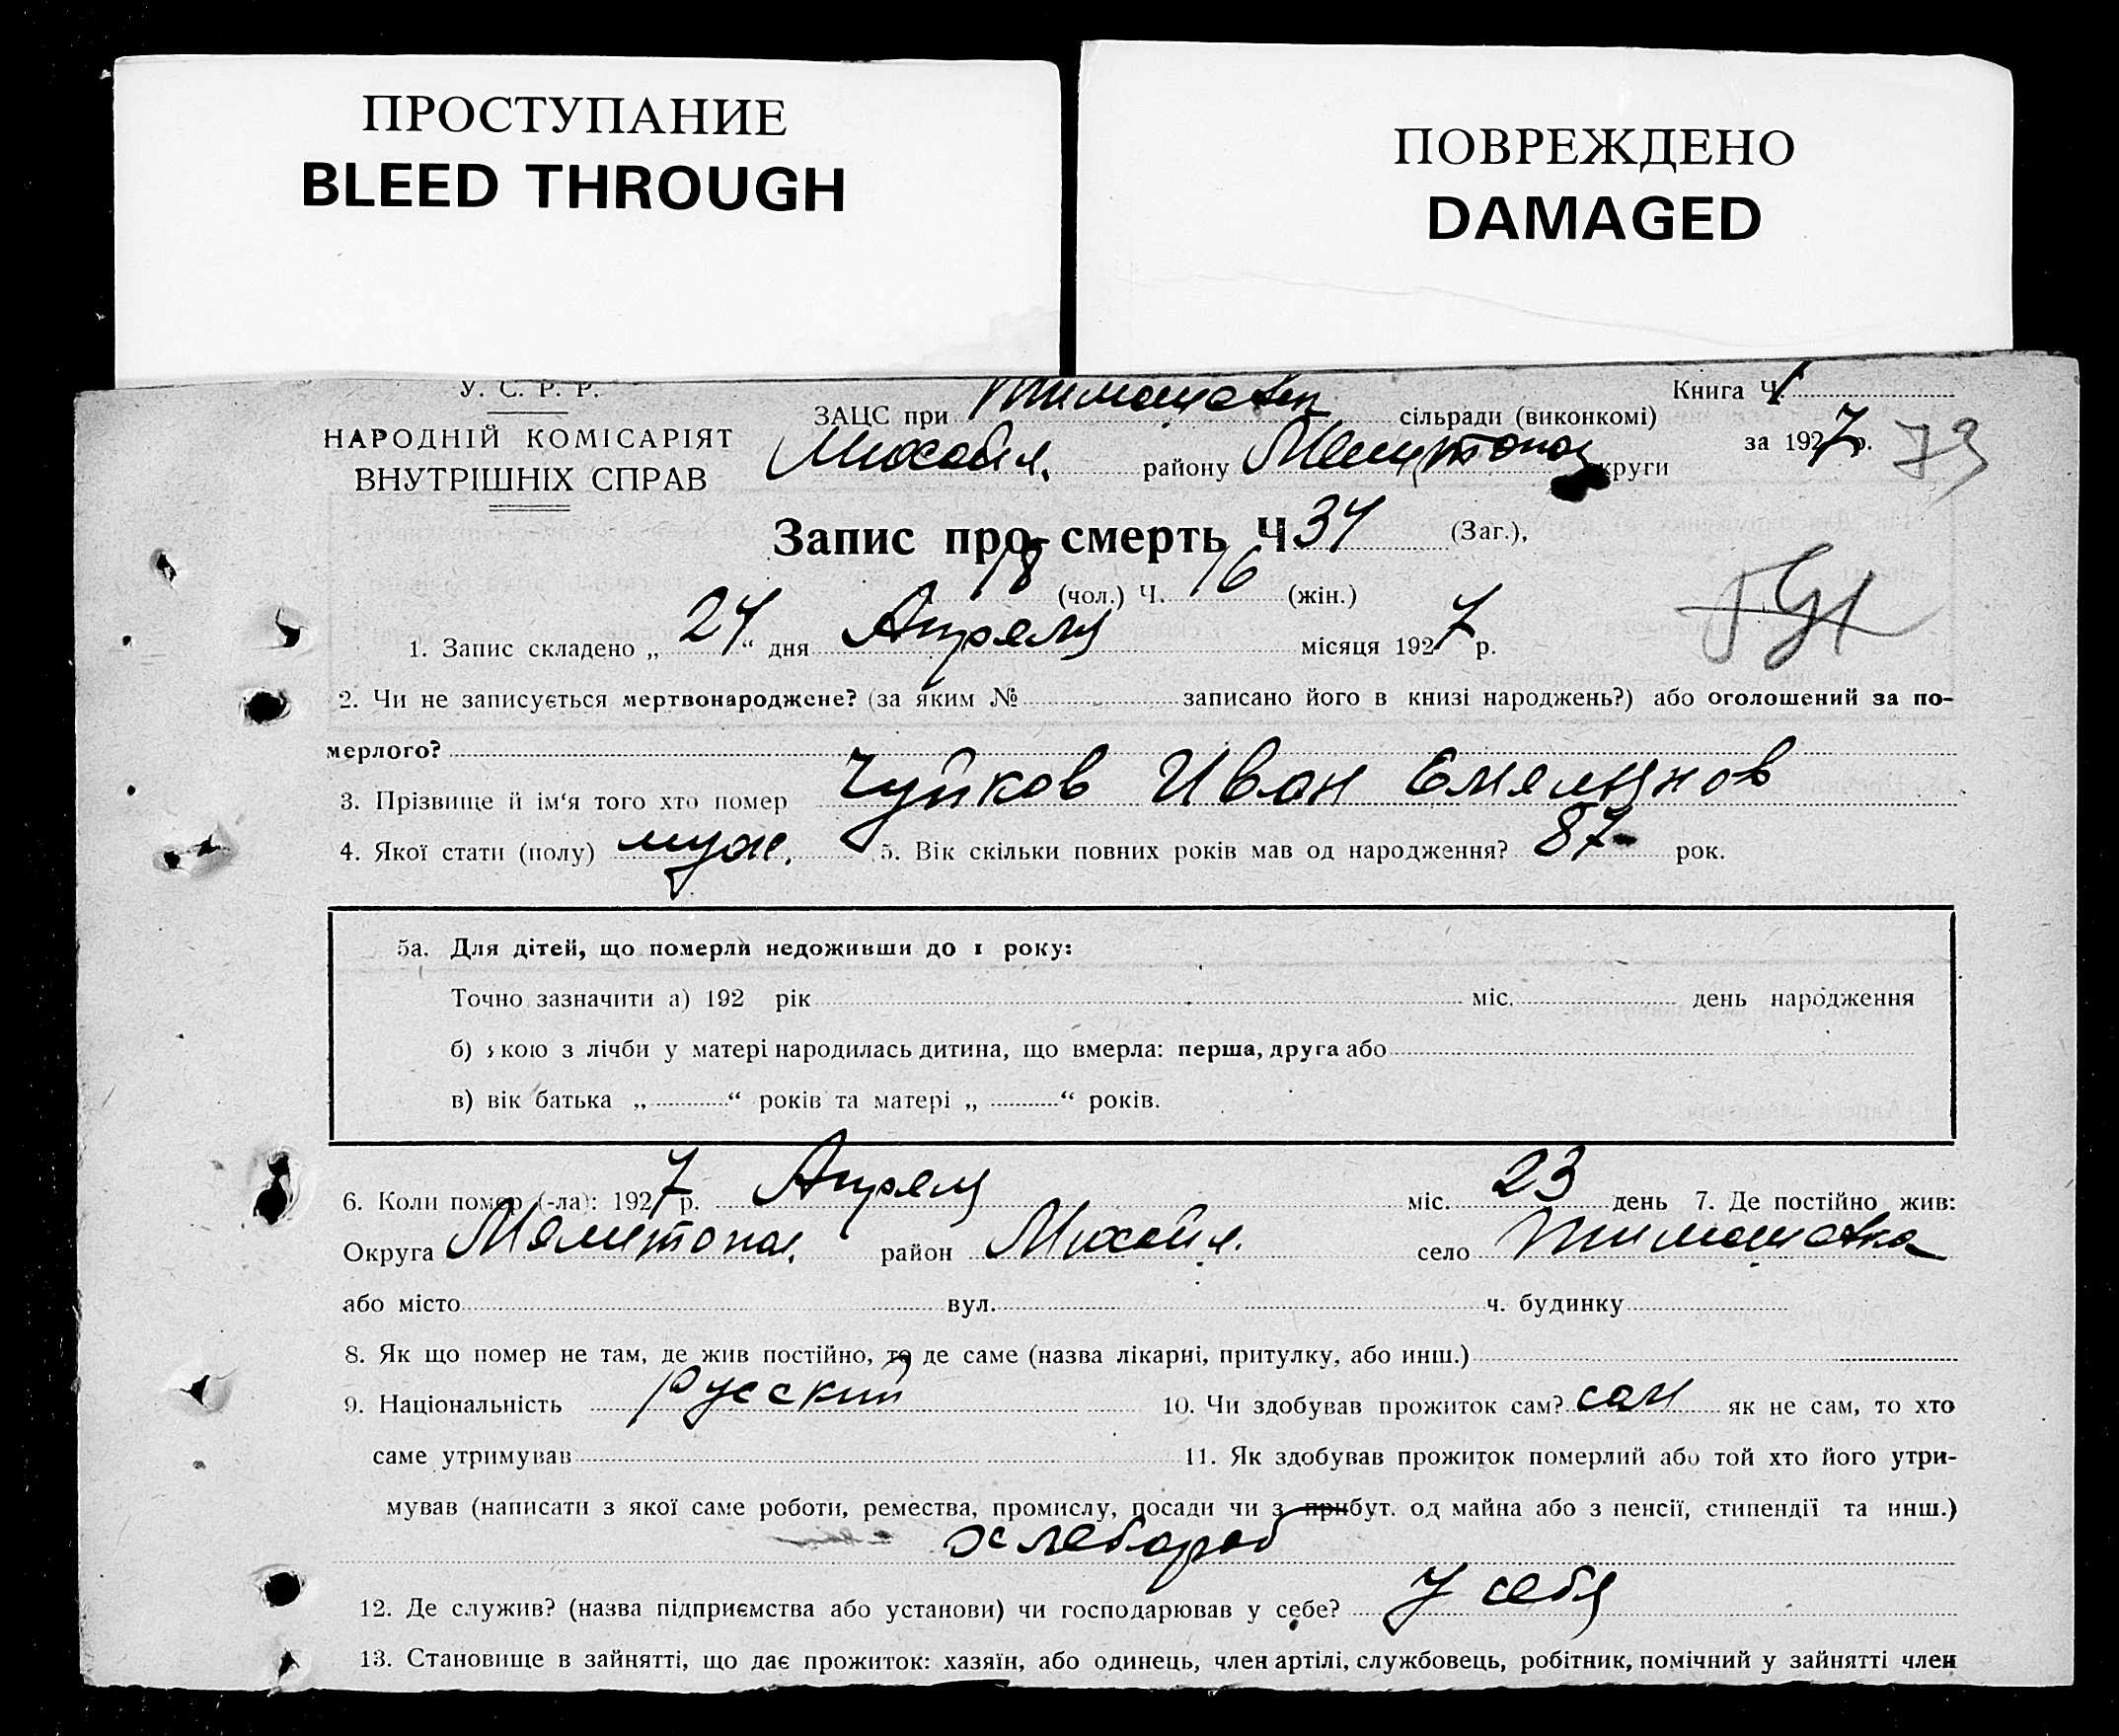 ПРОСТУПАНИЕ
BLEED THROUGH
ПОВРЕЖДЕНО
DAMAGED
У. С. Р. Р.
НАРОДНІЙ КОМІСАРІЯТ
ВНУТРІШНІХ СПРАВ
ЗАЦС при Тимошовск сільради (виконкомі)
Михайл. району Мелитопол округи
Книга Ч. 1
за 1927 р. 73
Запис про смерть Ч. 34 (Заг.),
18 (чол.) Ч. 16 (жін.)
1. Запис складено „ 24 “ дня Апреля місяця 1927 р.
2. Чи не записується мертвонароджене? (за яким № записано його в книзі народжень?) або оголошений за по-
мерлого?
3. Прізвище й ім'я того хто помер Чуйков Иван Емельянов
4. Якої стати (полу) муж. 5. Вік скільки повних років мав од народження? 87 рок.
5а. Для дітей, що померли недоживши до 1 року:
Точно зазначити а) 192 рік міс. день народження
б) якою з лічби у матері народилась дитина, що вмерла: перша, друга або
в) вік батька „ “ років та матері „ “ років.
6. Коли помер (-ла): 1927 р. Апреля міс. 23 день 7. Де постійно жив:
Округа Мелитопол. район Михайл. село Тимошовка
або місто вул. ч. будинку
8. Як що помер не там, де жив постійно, то де саме (назва лікарні, притулку, або инш.)
9. Національність Русский 10. Чи здобував прожиток сам? сам як не сам, то хто
саме утримував 11. Як здобував прожиток померлий або той хто його утри-
мував (написати з якої саме роботи, ремества, промислу, посади чи з прибут. од майна або з пенсії, стипендії та инш.)
хлебороб
12. Де служив? (назва підприємства або установи) чи господарював у себе? У себя
13. Становище в зайнятті, що дає прожиток: хазяїн, або одинець, член артілі, службовець, робітник, помічний у зайнятті член